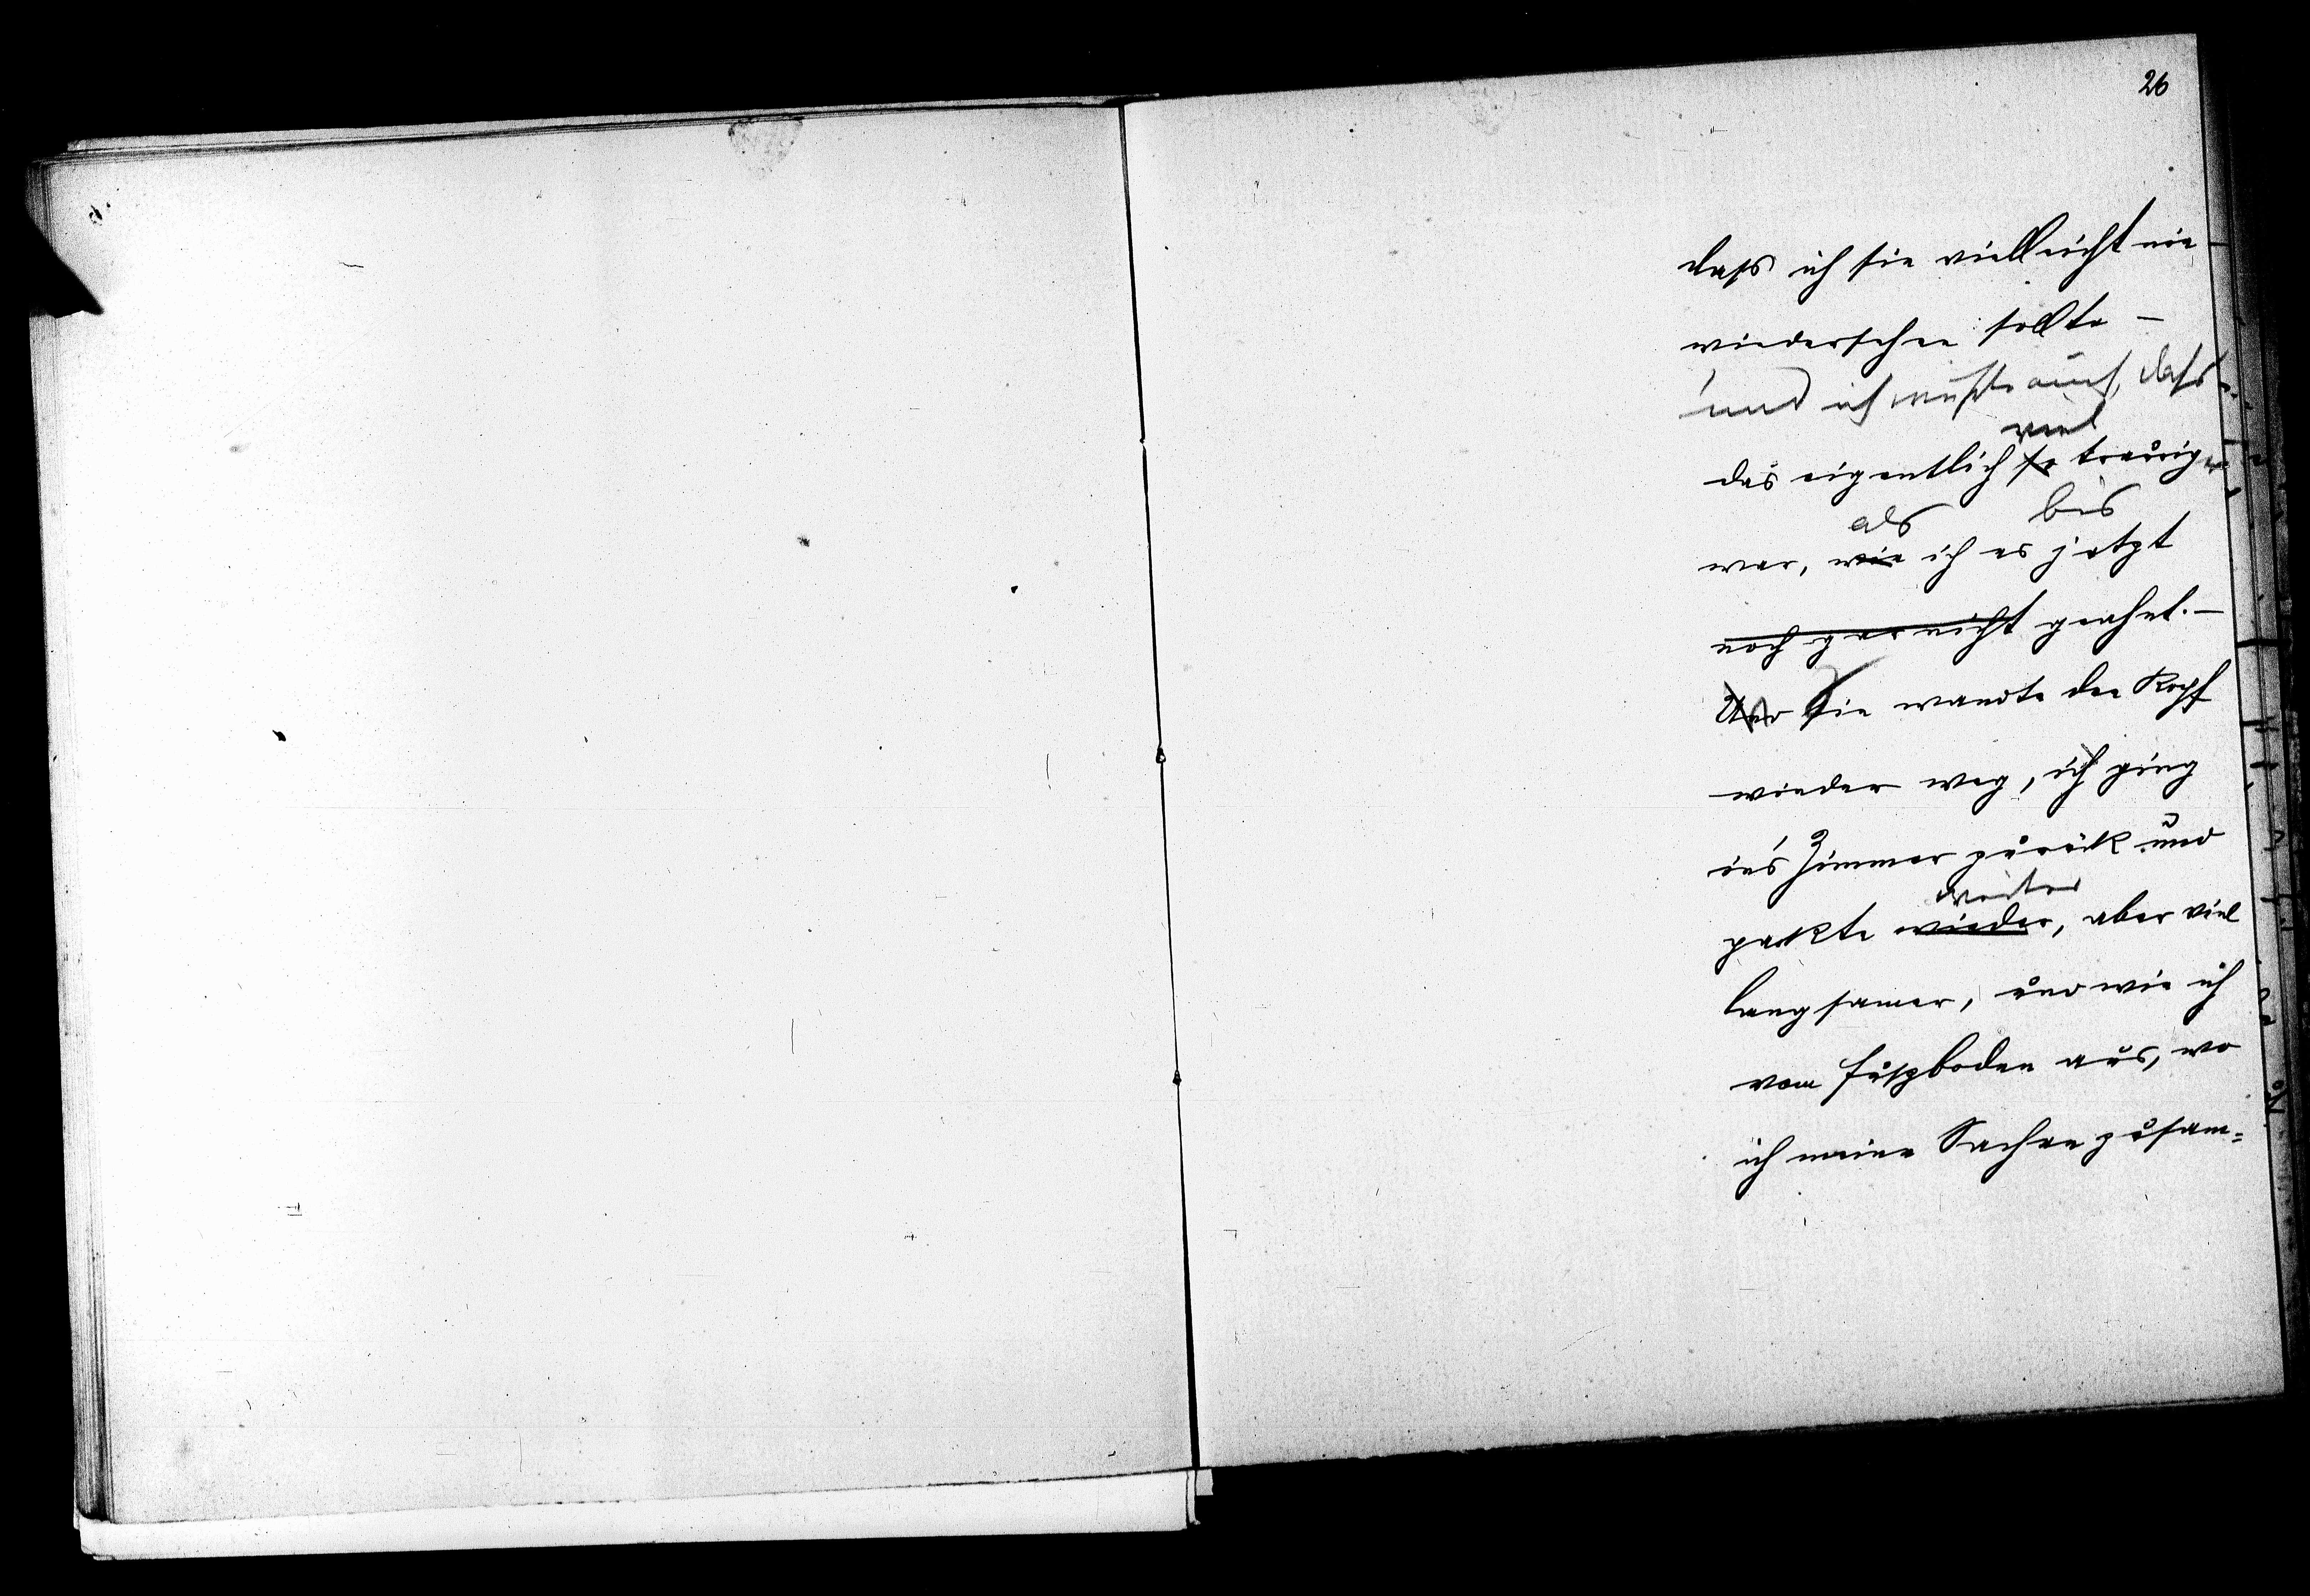 26
dass ich sie vielleicht nie
wiedersehen sollte –
und ich wußte auch, dass
viel
das eigentlich so trauriger
als bis
war, wie ich es jetzt
noch gar nicht geahnt. –
Und Sie wandte den Kopf
wieder weg, ich ging
in's Zimmer zurück und
weiter
packte wieder, aber viel
langsamer, und wie ich
vom Fußboden aus, wo
ich meine Sachen zusam=